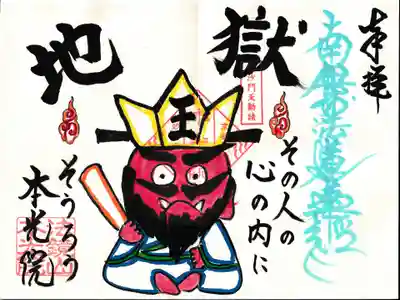 奉拝
南無妙法蓮華経
地獄
王
その人の
心の内に
そうろう
本光院